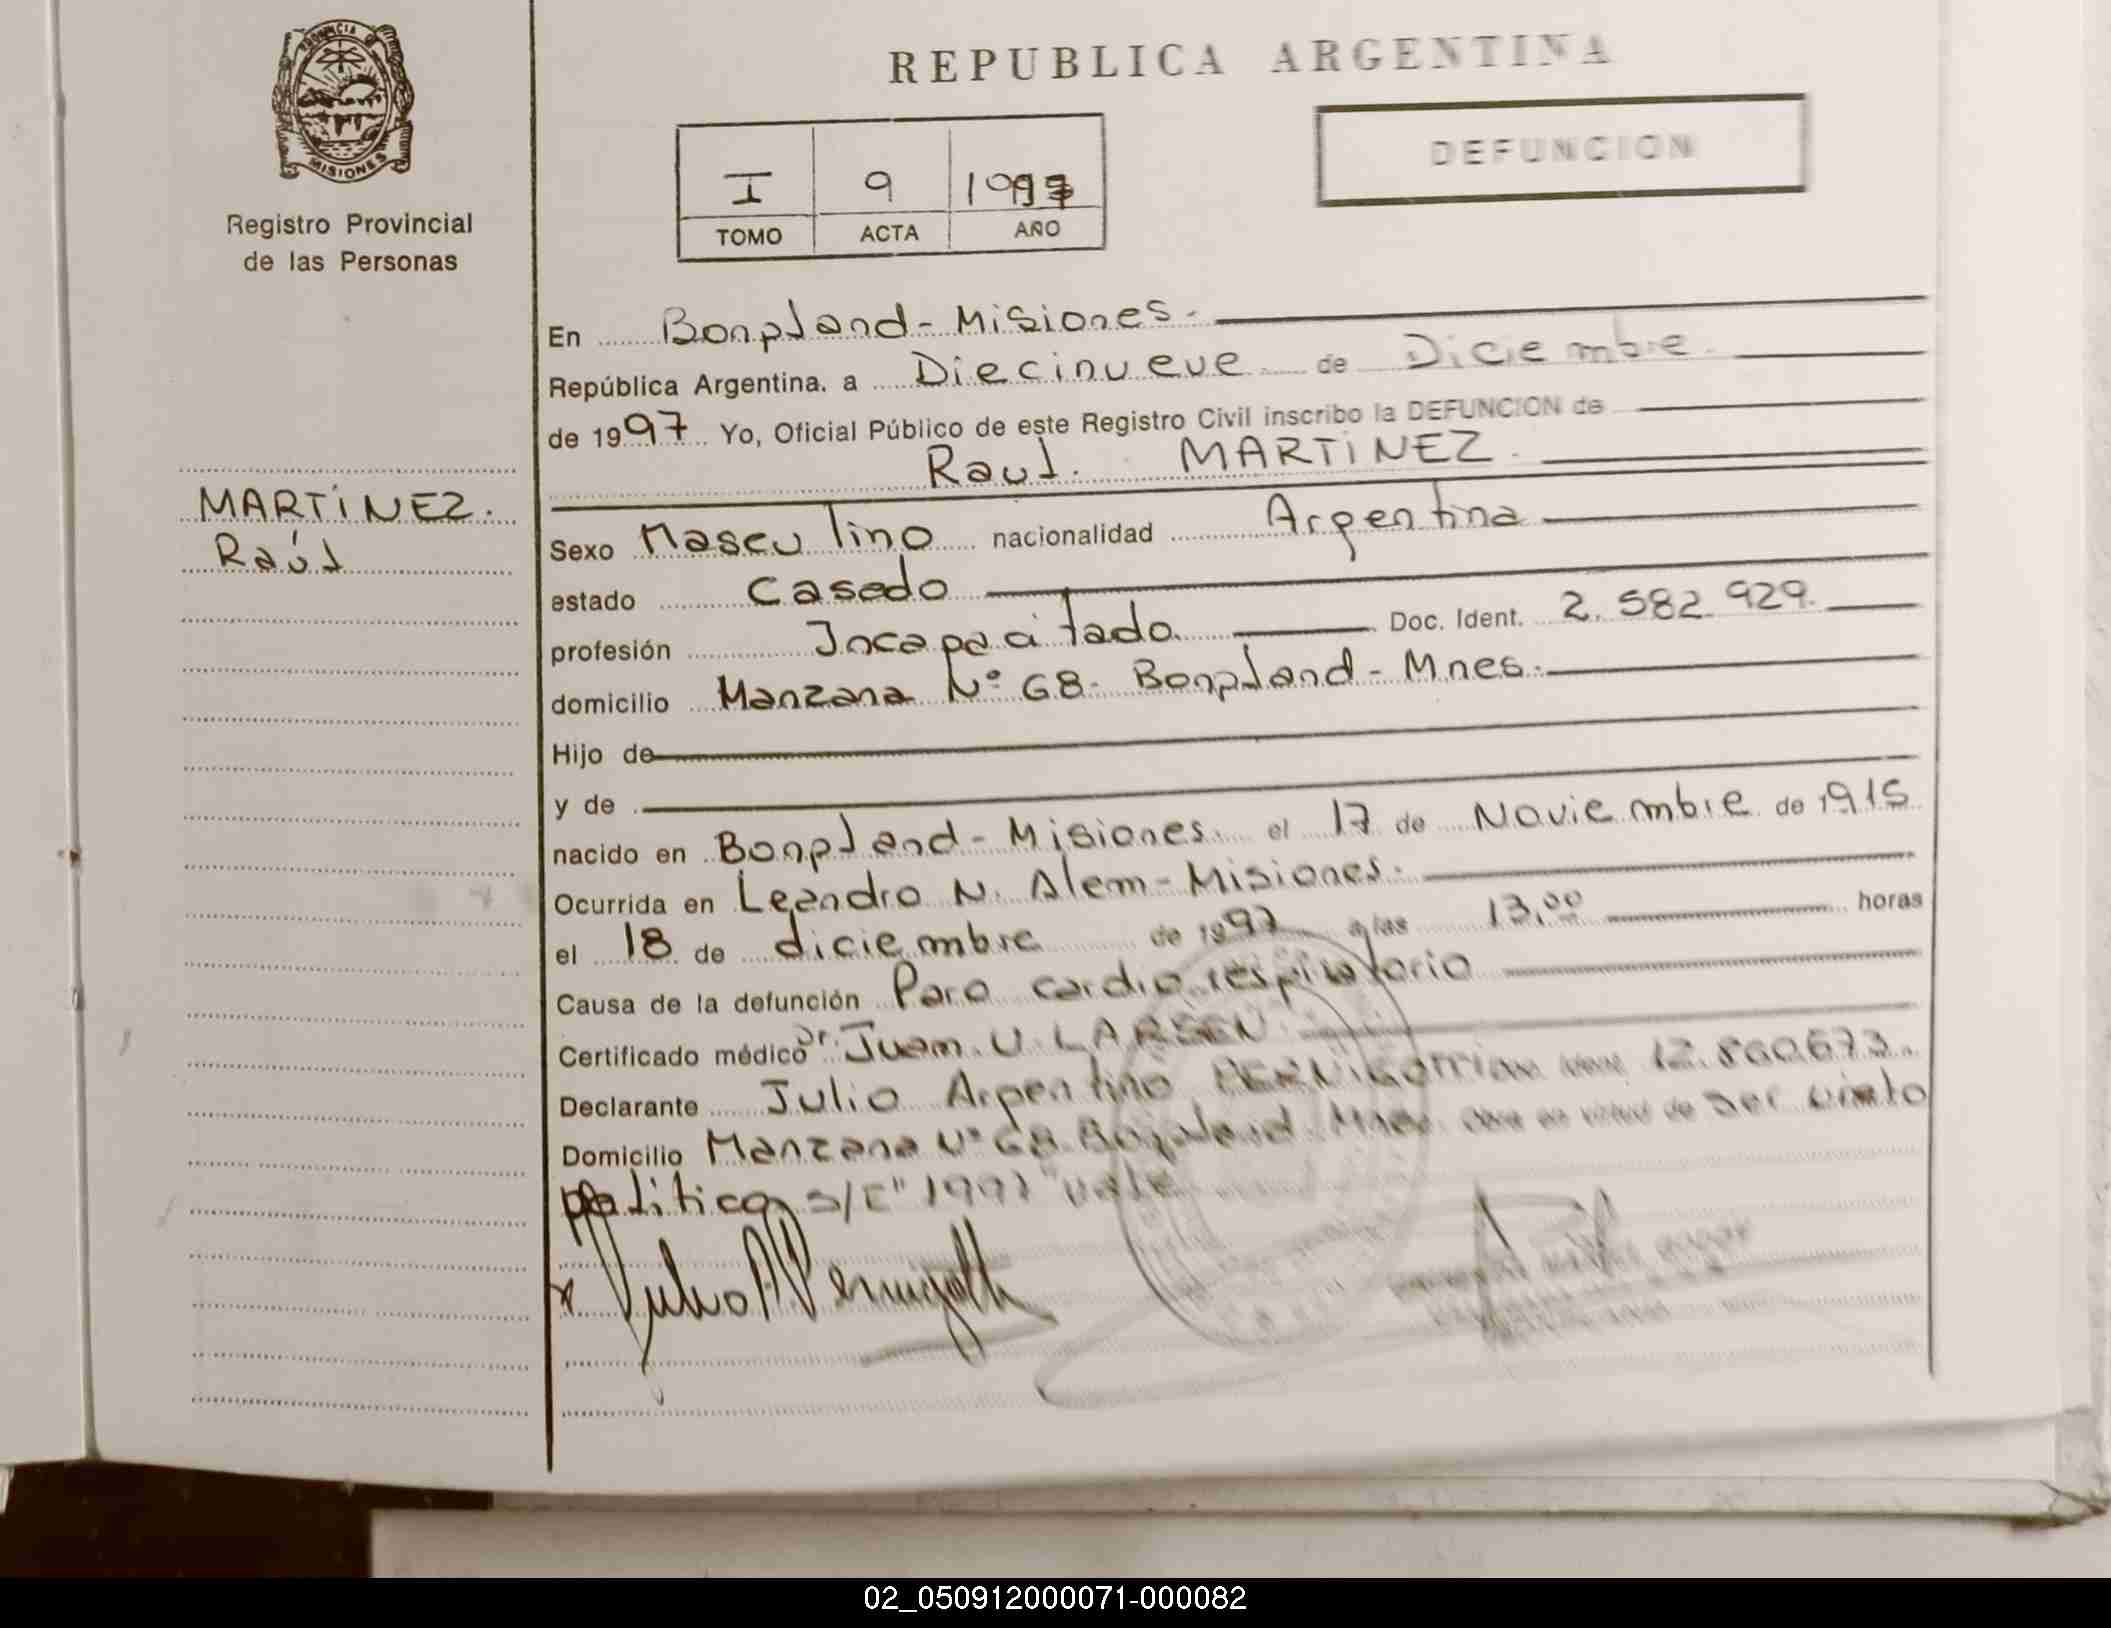 PROVINCIA DE
MISIONES
Registro Provincial
de las Personas
MARTINEZ.
Raúl
REPUBLICA ARGENTINA
DEFUNCION
I 9 1997
TOMO ACTA AÑO
En Bonpland - Misiones.
República Argentina. a Diecinueve de Diciembre.
de 1997 Yo, Oficial Público de este Registro Civil inscribo la DEFUNCION de
Raul. MARTINEZ.
Sexo Masculino nacionalidad Argentina
estado Casado
profesión Incapacitado. Doc. Ident. 2.582.929.
domicilio Manzana Nº 68- Bonpland - Mnes.
Hijo de
y de
nacido en Bonpland - Misiones. el 17 de Noviembre de 1915
Ocurrida en Leandro N. Alem - Misiones.
el 18 de diciembre de 1997 a las 13,00 horas
Causa de la defunción Paro cardio respiratorio
Certificado médico Dr. Juan. U. LARSEN
Declarante Julio Argentino PERNIGOTTI 12.860.673.
Domicilio Manzana Nº 68. Bonpland. Mnes. obra en virtud de Ser vieto
politico, S/E "1997" vale
02_050912000071-000082